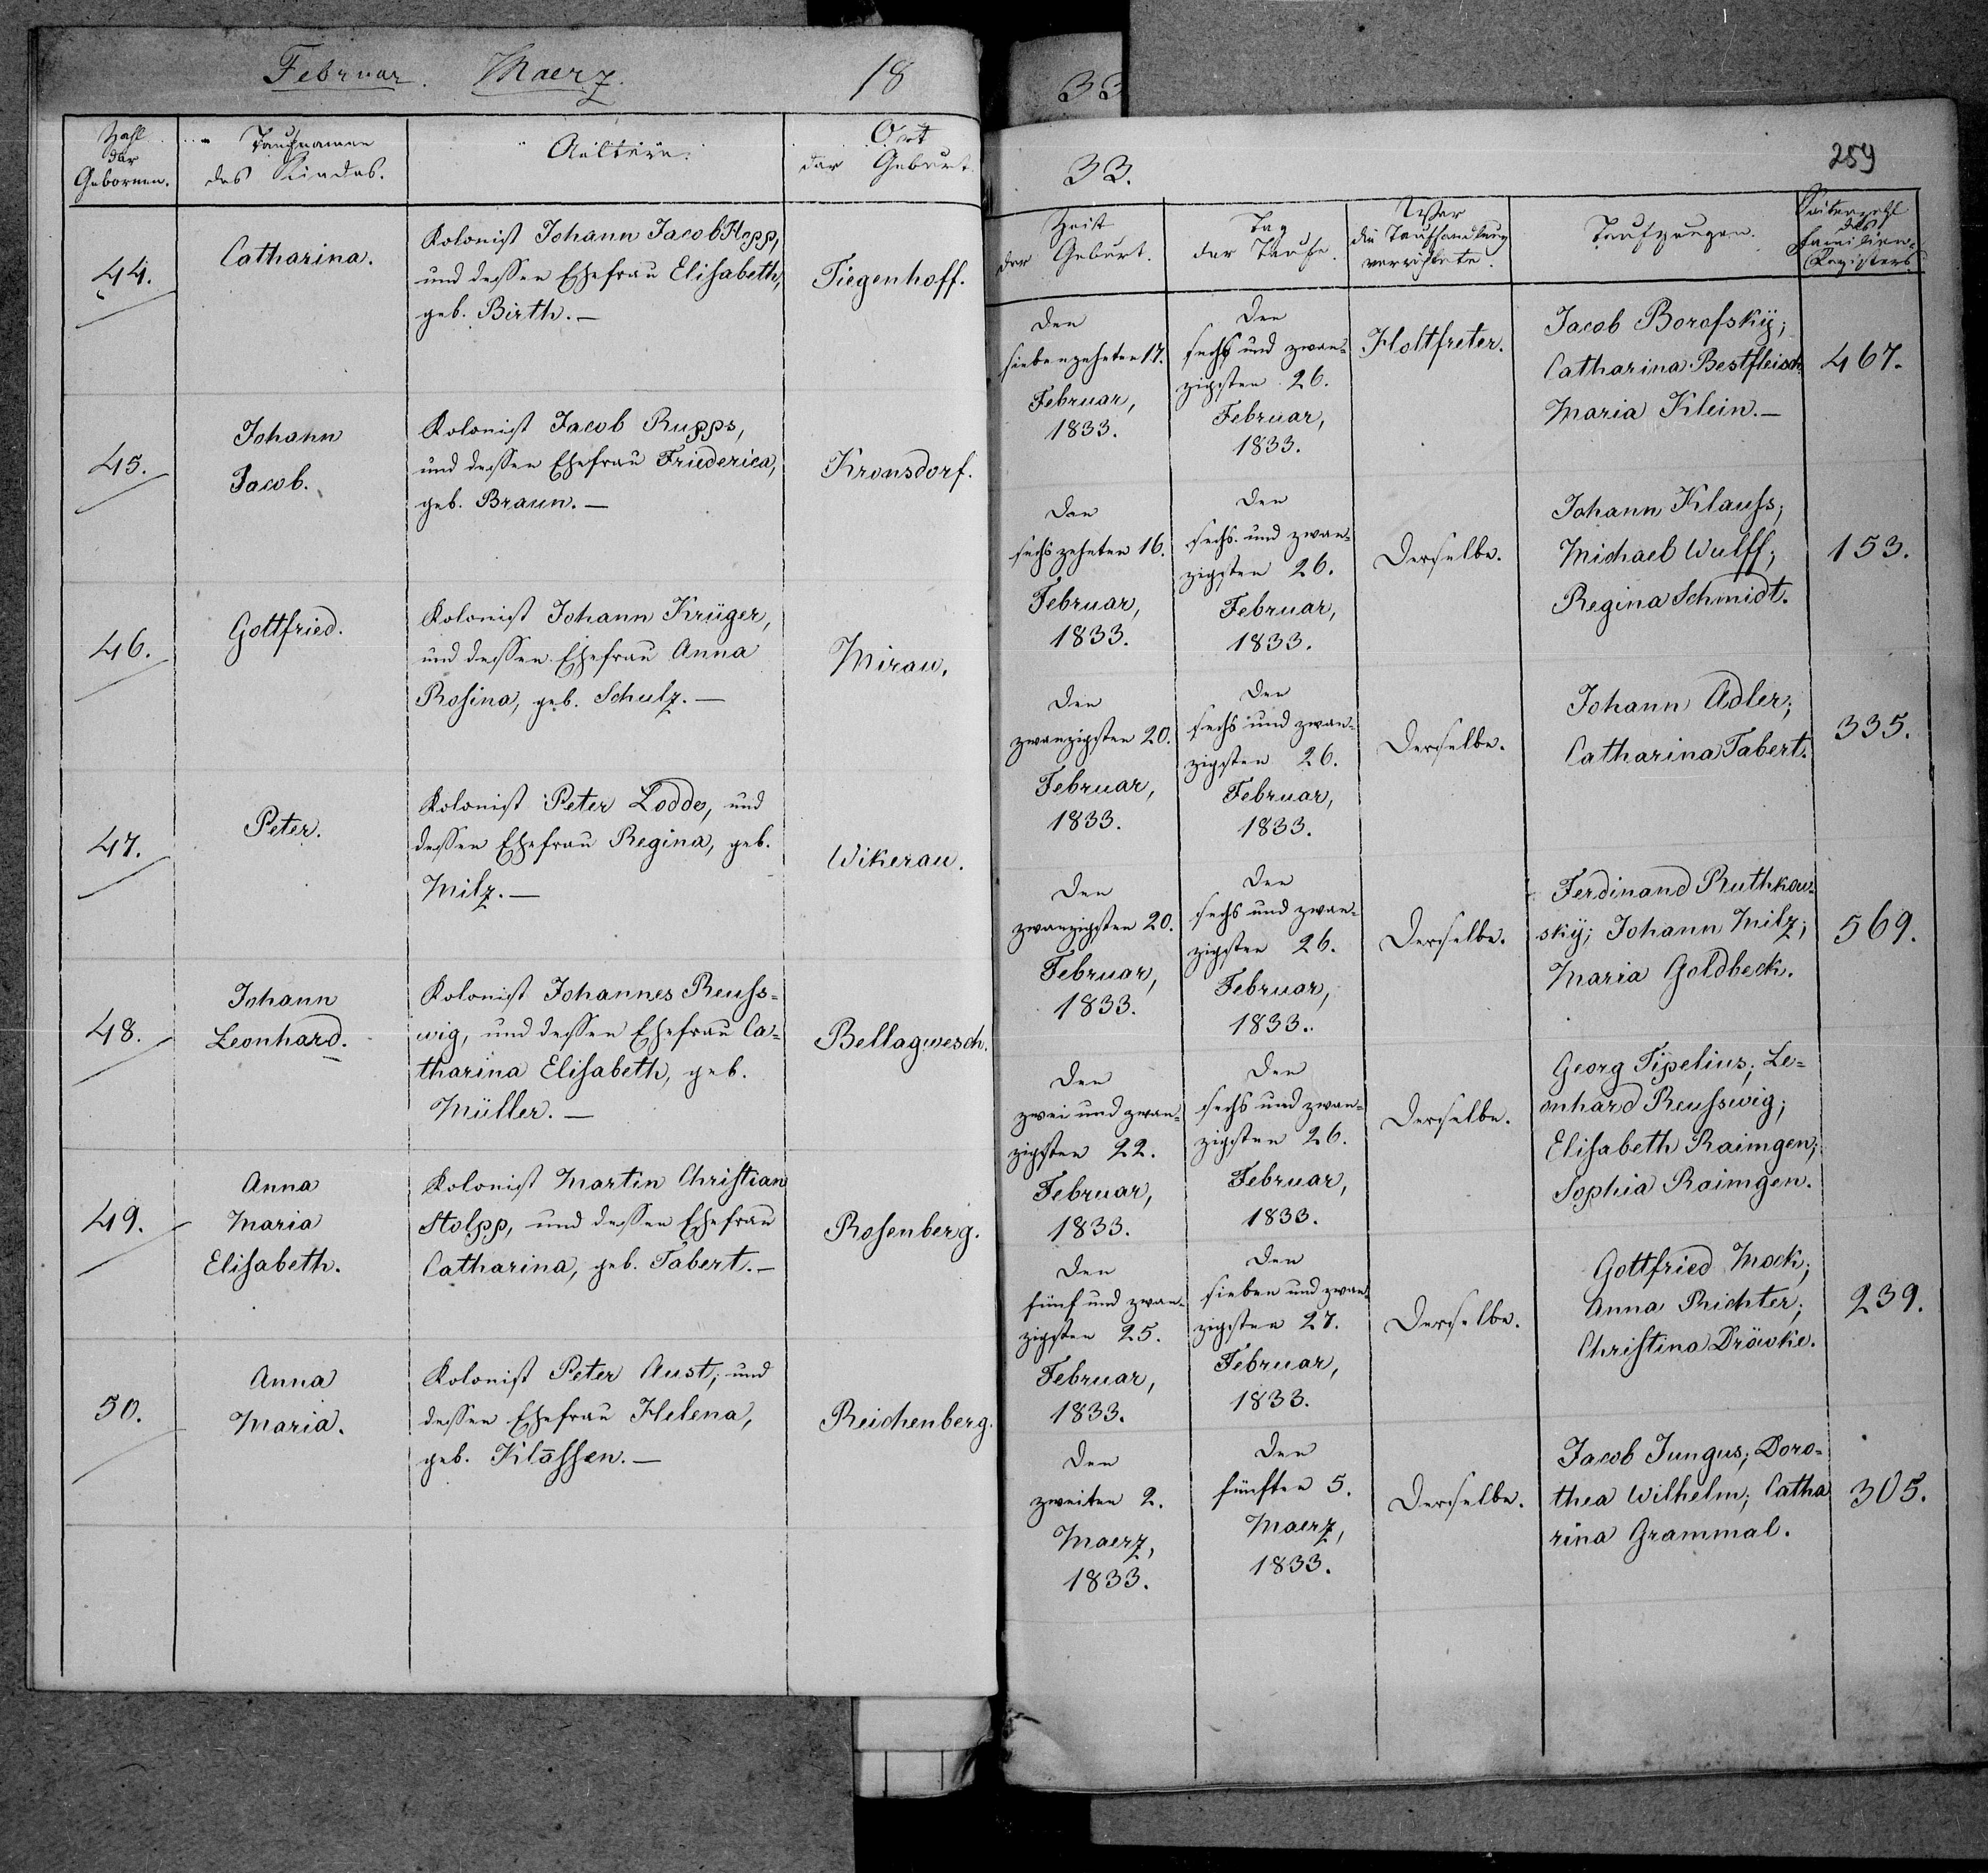 Februar. Maerz. 18
33
Zahl der Gebornen.
Taufnamen des Kindes.
Aeltern.
Ort der Geburt.
44.
Catharina.
Kolonist Johann Jacob Hopp,
und dessen Ehefrau Elisabeth,
geb. Birth. —
Tiegenhoff.
45.
Johann
Jacob.
Kolonist Jacob Rupps,
und dessen Ehefrau Friederica,
geb. Braun. —
Kronsdorf.
46.
Gottfried.
Kolonist Johann Krüger,
und dessen Ehefrau Anna
Rosina, geb. Schulz. —
Mirau.
47.
Peter.
Kolonist Peter Lodde, und
dessen Ehefrau Regina, geb.
Milz. —
Wikerau.
48.
Johann
Leonhard.
Kolonist Johannes Reuss-
wig, und dessen Ehefrau Ca-
tharina Elisabeth, geb.
Müller. —
Bellagwesch.
49.
Anna
Maria
Elisabeth.
Kolonist Martin Christian
Stolpp, und dessen Ehefrau
Catharina, geb. Tabert. —
Rosenberg.
50.
Anna
Maria.
Kolonist Peter Aust, und
dessen Ehefrau Helena,
geb. Klassen. —
Reichenberg.
33.
259
Zeit
der Geburt.
Tag
der Taufe.
Wer
die Taufhandlung
verrichtete.
Taufzeugen.
Seitenzahl
des
Familien-
Registers.
Den
siebenzehnten 17.
Februar,
1833.
Den
sechs und zwan-
zigsten 26.
Februar,
1833.
Holtfreter.
Jacob Borofskÿ;
Catharina Bestfleisch
Maria Klein. —
467.
Den
sechszehnten 16.
Februar,
1833.
Den
sechs und zwan-
zigsten 26.
Februar,
1833.
Derselbe.
Johann Klauss;
Michael Wulff;
Regina Schmidt.
153.
Den
zwanzigsten 20.
Februar,
1833.
Den
sechs und zwan-
zigsten 26.
Februar,
1833.
Derselbe.
Johann Adler;
Catharina Tabert.
335.
Den
zwanzigsten 20.
Februar,
1833.
Den
sechs und zwan-
zigsten 26.
Februar,
1833.
Derselbe.
Ferdinand Ruthkow-
skÿ; Johann Milz;
Maria Goldbeck.
569.
Den
zwei und zwan-
zigsten 22.
Februar,
1833.
Den
sechs und zwan-
zigsten 26.
Februar,
1833.
Derselbe.
Georg Tÿpelius; Le-
onhard Reusswig;
Elisabeth Raimgen;
Sophia Raimgen.
Den
fünf und zwan-
zigsten 25.
Februar,
1833.
Den
sieben und zwan-
zigsten 27.
Februar,
1833.
Derselbe.
Gottfried Mock;
Anna Richter;
Christina Dräwke.
239.
Den
zweiten 2.
Maerz,
1833.
Den
fünften 5.
Maerz,
1833.
Derselbe.
Jacob Jungus; Doro-
thea Wilhelm; Catha
rina Grammal.
305.